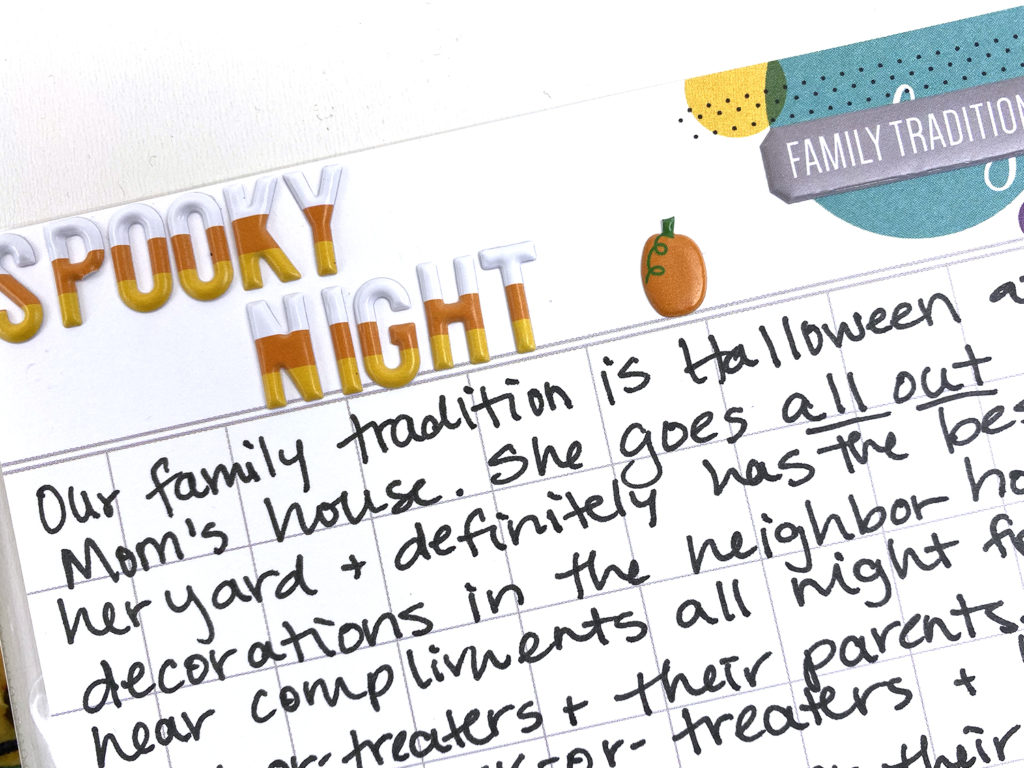 FAMILY TRADITION
SPOOKY
NIGHT
Our family tradition is Halloween
Mom's house. She goes all out
her yard + definitely has the
decorations in the neighbor
hear compliments all night
treaters + their parents.
treaters +
their